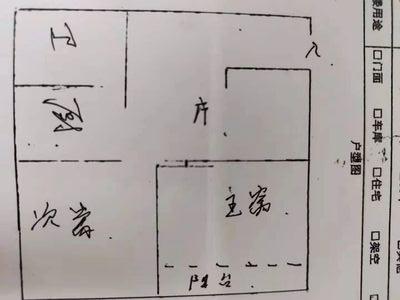 卫
入
厨
厅
次卧
主卧
阳台
户型图
用途
□门面
□车库
□住宅
□架空